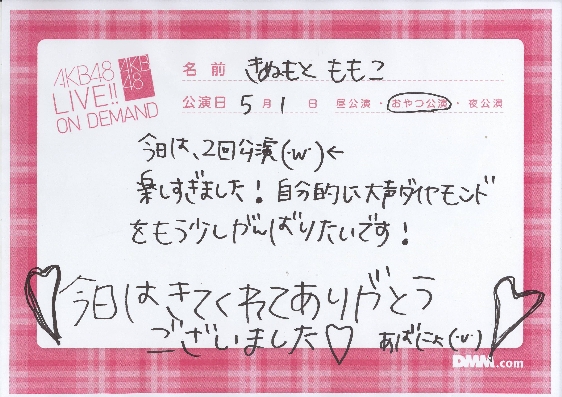 AKB48
LIVE!!
ON DEMAND
AKB
48
名前 きぬもと ももこ
公演日 5月1日 昼公演・おやつ公演・夜公演
今日は、2回公演(･w･)←
楽しすぎました！自分的に大声ダイヤモンド
をもう少しがんばりたいです！
今日は、きてくれてありがとう
ございました♡
あばにょ(･w･)
DMM.com